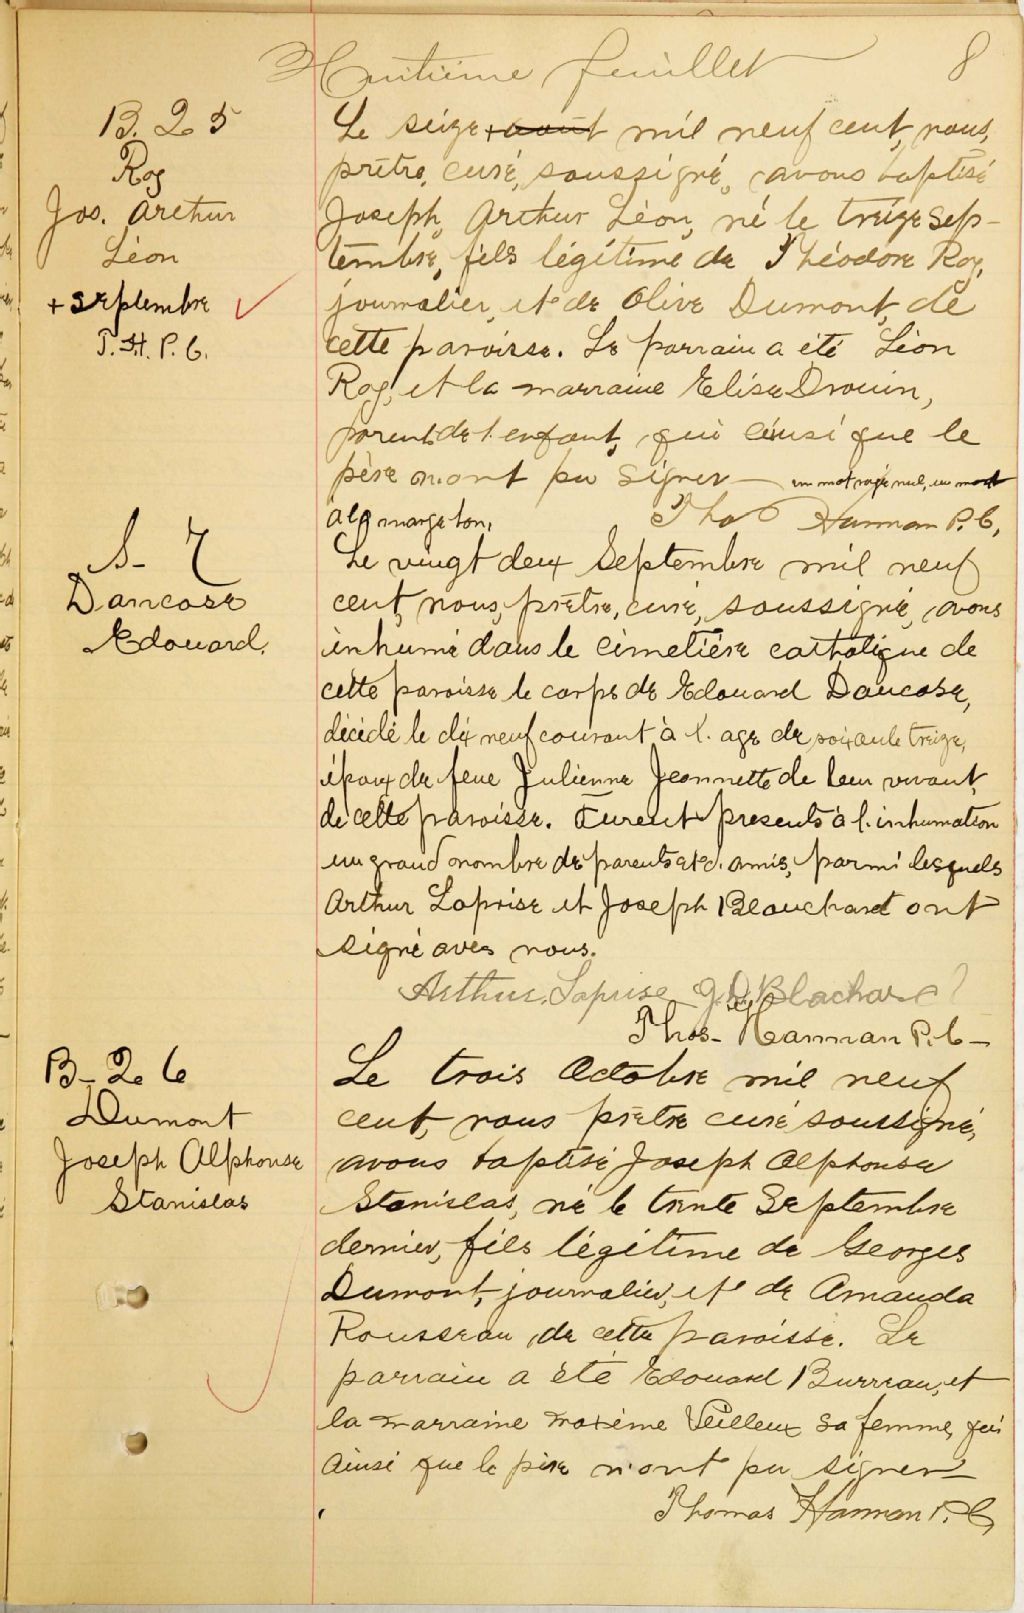 Huitième feuillet 8
B. 25
Roy
Jos. Arthur
Léon
+ septembre
T. H. P. C.
Le seize + août mil neuf cent, nous,
prêtre, curé, soussigné, avons baptisé
Joseph, Arthur Léon, né le treize sep-
tembre, fils légitime de Théodore Roy,
journalier, et de Olive Dumont, de
cette paroisse. Le parrain a été Léon
Roy, et la marraine Elise Drouin,
parent de l'enfant, qui ainsi que le
père n'ont pu signer — un mot rayé nul, un mot
a la marge bon. Thos Hannan P. C.
S - 7
Dancose
Edouard.
Le vingt deux Septembre mil neuf
cent, nous, prêtre, curé, soussigné, avons
inhumé dans le cimetière catholique de
cette paroisse le corps de Edouard Dancose,
décédé le dix neuf courant à l'age de soixante treize,
époux de feue Julienne Jeannette de leur vivant,
de cette paroisse. Furent presents à l'inhumation
un grand nombre de parents et d'amis, parmi lesquels
Arthur Laprise et Joseph Blanchard ont
signé avec nous.
Arthur Laprise J. D. Blachar
Thos. Hannan P. C -
B - 26
Dumont
Joseph Alphonse
Stanislas
Le trois Octobre mil neuf
cent, nous prêtre curé soussigné,
avons baptisé Joseph Alphonse
Stanislas, né le trente Septembre
dernier, fils légitime de Georges
Dumont, journalier, et de Amanda
Rousseau de cette paroisse. Le
parrain a été Edouard Burreau, et
la marraine maxime Veilleux sa femme, qui
ainsi que le père n'ont pu signer
Thomas Hannan P. C